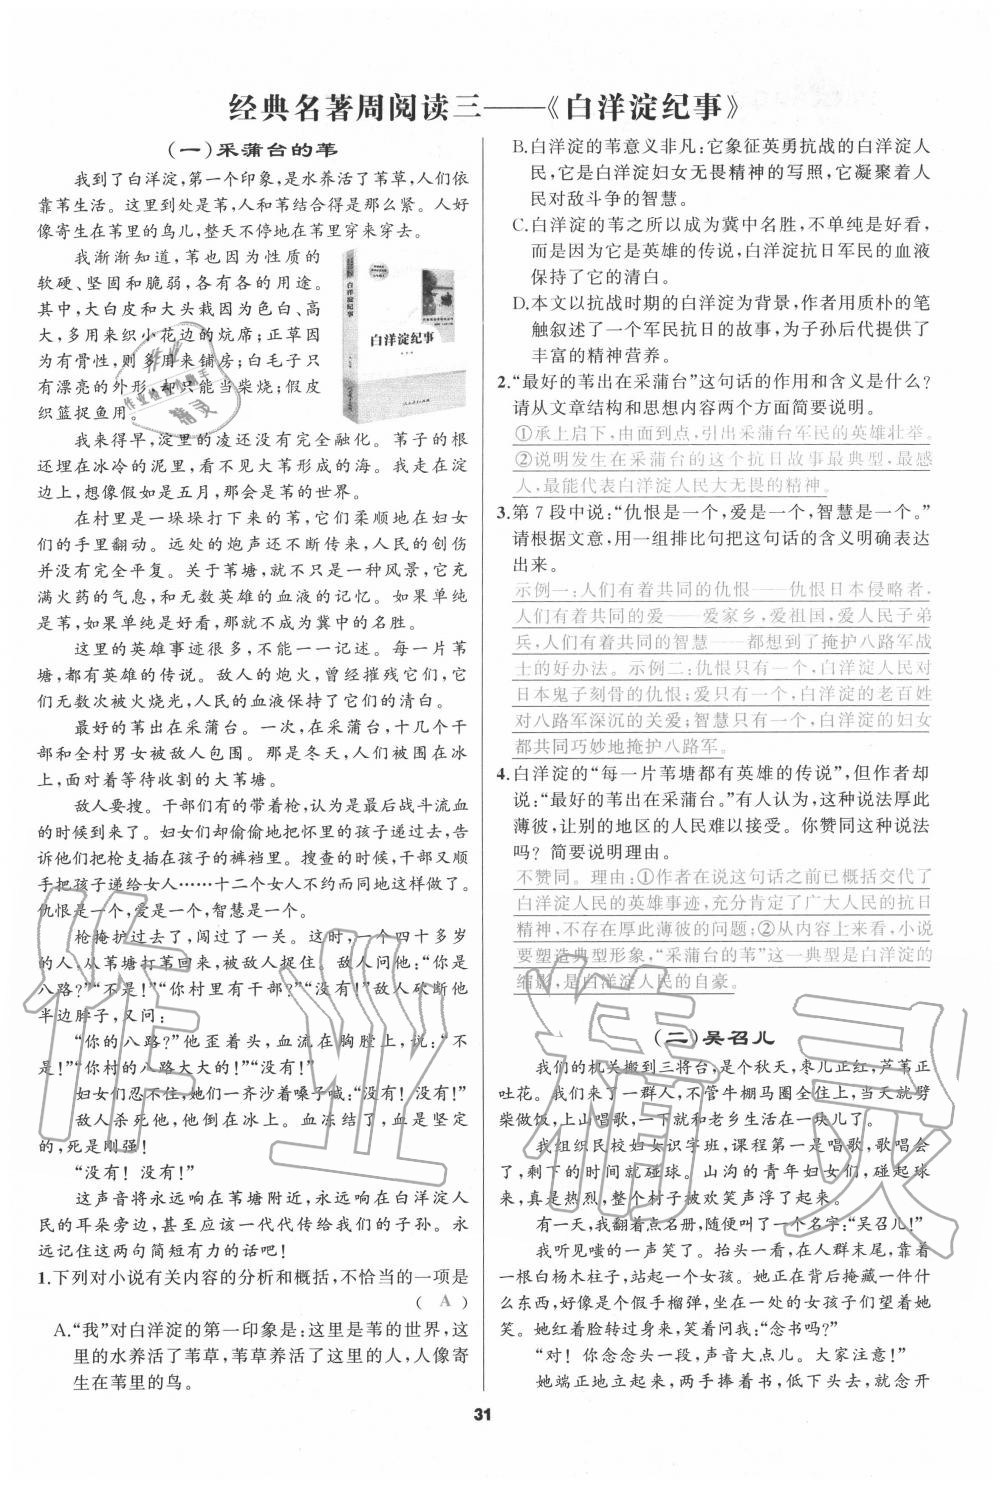 经典名著周阅读三——《白洋淀纪事》
(一)采蒲台的苇
我到了白洋淀,第一个印象,是水养活了苇草,人们依
靠苇生活。这里到处是苇,人和苇结合得是那么紧。人好
像寄生在苇里的鸟儿,整天不停地在苇里穿来穿去。
我渐渐知道,苇也因为性质的
软硬、坚固和脆弱,各有各的用途。
其中,大白皮和大头栽因为色白、高
大,多用来织小花边的炕席;正草因
为有骨性,则多用来铺房;白毛子只
有漂亮的外形,却只能当柴烧;假皮
织篮捉鱼用。
白洋淀纪事
白洋淀纪事
我来得早,淀里的凌还没有完全融化。苇子的根
还埋在冰冷的泥里,看不见大苇形成的海。我走在淀
边上,想像假如是五月,那会是苇的世界。
在村里是一垛垛打下来的苇,它们柔顺地在妇女
们的手里翻动。远处的炮声还不断传来,人民的创伤
并没有完全平复。关于苇塘,就不只是一种风景,它充
满火药的气息,和无数英雄的血液的记忆。如果单纯
是苇,如果单纯是好看,那就不成为冀中的名胜。
这里的英雄事迹很多,不能一一记述。每一片苇
塘,都有英雄的传说。敌人的炮火,曾经摧残它们,它
们无数次被火烧光,人民的血液保持了它们的清白。
最好的苇出在采蒲台。一次,在采蒲台,十几个干
部和全村男女被敌人包围。那是冬天,人们被围在冰
上,面对着等待收割的大苇塘。
敌人要搜。干部们有的带着枪,认为是最后战斗流血
的时候到来了。妇女们却偷偷地把怀里的孩子递过去,告
诉他们把枪支插在孩子的裤裆里。搜查的时候,干部又顺
手把孩子递给女人……十二个女人不约而同地这样做了。
仇恨是一个,爱是一个,智慧是一个。
枪掩护过去了,闯过了一关。这时,一个四十多岁
的人,从苇塘打苇回来,被敌人捉住。敌人问他:“你是
八路?”“不是!”“你村里有干部?”“没有!”敌人砍断他
半边脖子,又问:
“你的八路?”他歪着头,血流在胸膛上,说:“不
是!”“你村的八路大大的!”“没有!”
妇女们忍不住,她们一齐沙着嗓子喊:“没有!没有!”
敌人杀死他,他倒在冰上。血冻结了,血是坚定
的,死是刚强!
“没有!没有!”
这声音将永远响在苇塘附近,永远响在白洋淀人
民的耳朵旁边,甚至应该一代代传给我们的子孙。永
远记住这两句简短有力的话吧!
1.下列对小说有关内容的分析和概括,不恰当的一项是
( A )
A.“我”对白洋淀的第一印象是:这里是苇的世界,这
里的水养活了苇草,苇草养活了这里的人,人像寄
生在苇里的鸟。
B.白洋淀的苇意义非凡:它象征英勇抗战的白洋淀人
民,它是白洋淀妇女无畏精神的写照,它凝聚着人
民对敌斗争的智慧。
C.白洋淀的苇之所以成为冀中名胜,不单纯是好看,
而是因为它是英雄的传说,白洋淀抗日军民的血液
保持了它的清白。
D.本文以抗战时期的白洋淀为背景,作者用质朴的笔
触叙述了一个军民抗日的故事,为子孙后代提供了
丰富的精神营养。
2.“最好的苇出在采蒲台”这句话的作用和含义是什么?
请从文章结构和思想内容两个方面简要说明。
①承上启下,由面到点,引出采蒲台军民的英雄壮举。
②说明发生在采蒲台的这个抗日故事最典型,最感
人,最能代表白洋淀人民大无畏的精神。
3.第7段中说:“仇恨是一个,爱是一个,智慧是一个。”
请根据文意,用一组排比句把这句话的含义明确表达
出来。
示例一:人们有着共同的仇恨——仇恨日本侵略者,
人们有着共同的爱——爱家乡,爱祖国,爱人民子弟
兵,人们有着共同的智慧——都想到了掩护八路军战
士的好办法。示例二:仇恨只有一个,白洋淀人民对
日本鬼子刻骨的仇恨;爱只有一个,白洋淀的老百姓
对八路军深沉的关爱;智慧只有一个,白洋淀的妇女
都共同巧妙地掩护八路军。
4.白洋淀的“每一片苇塘都有英雄的传说”,但作者却
说:“最好的苇出在采蒲台。”有人认为,这种说法厚此
薄彼,让别的地区的人民难以接受。你赞同这种说法
吗?简要说明理由。
不赞同。理由:①作者在说这句话之前已概括交代了
白洋淀人民的英雄事迹,充分肯定了广大人民的抗日
精神,不存在厚此薄彼的问题;②从内容上来看,小说
要塑造典型形象,“采蒲台的苇”这一典型是白洋淀的
缩影,是白洋淀人民的自豪。
(二)吴召儿
我们的机关搬到三将台,是个秋天,枣儿正红,芦苇正
吐花。我们来了一群人,不管牛棚马圈全住上,当天就劈
柴做饭,上山唱歌,一下就和老乡生活在一块儿了。
我组织民校妇女识字班,课程第一是唱歌,歌唱会
了,剩下的时间就碰球。山沟的青年妇女们,碰起球
来,真是热烈,整个村子被欢笑声浮了起来。
有一天,我翻着点名册,随便叫了一个名字:“吴召儿!”
我听见嗤的一声笑了。抬头一看,在人群末尾,靠着
一根白杨木柱子,站起一个女孩。她正在背后掩藏一件什
么东西,好像是个假手榴弹,坐在一处的女孩子们望着她
笑。她红着脸转过身来,笑着问我:“念书吗?”
“对!你念念头一段,声音大点儿。大家注意!”
她端正地立起来,两手捧着书,低下头去,就念开
31
作业精灵